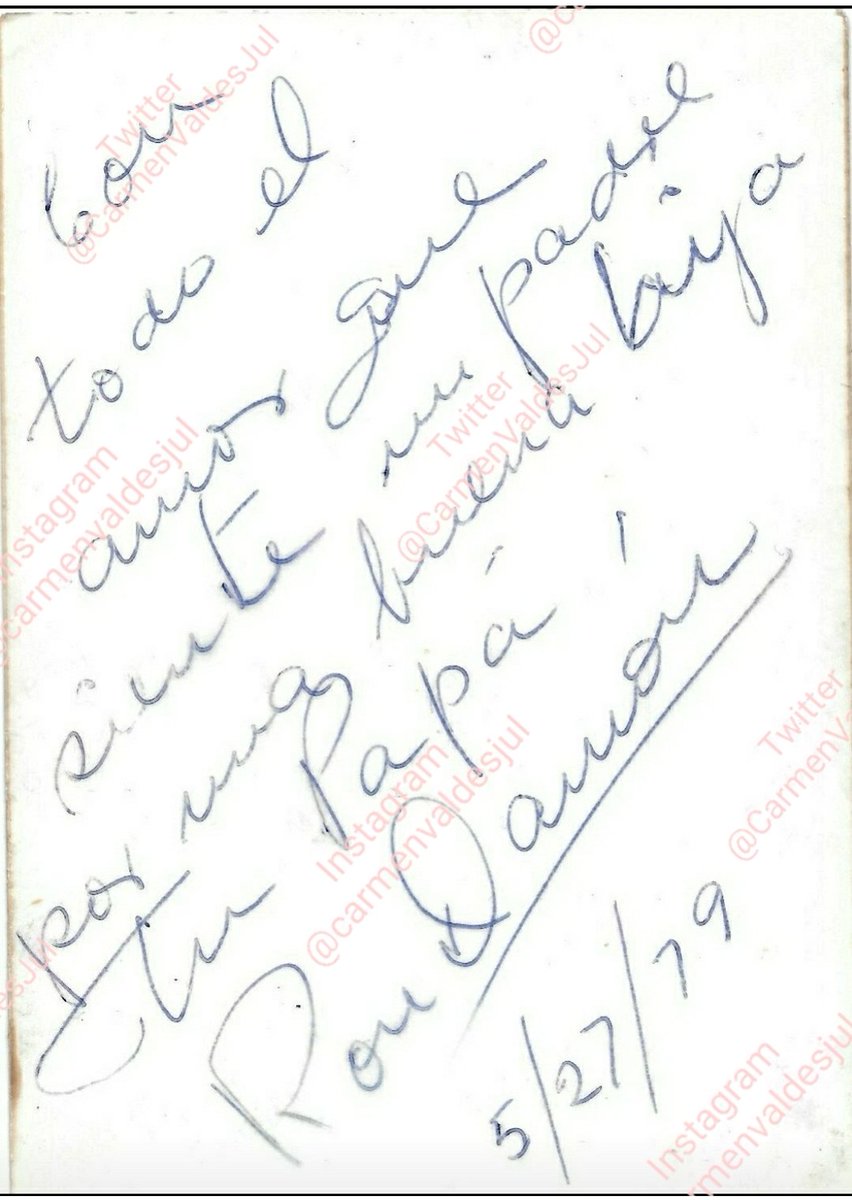 Con
todo el
amor que
siente un padre
por una buena hija
tu Papá
Ron Damón
5/27/79
Twitter
@CarmenValdesJul
Instagram
@carmenvaldesjul
Twitter
@CarmenValdesJul
Instagram
@carmenvaldesjul
Twitter
@CarmenV
Instagram
carmenvaldesjul